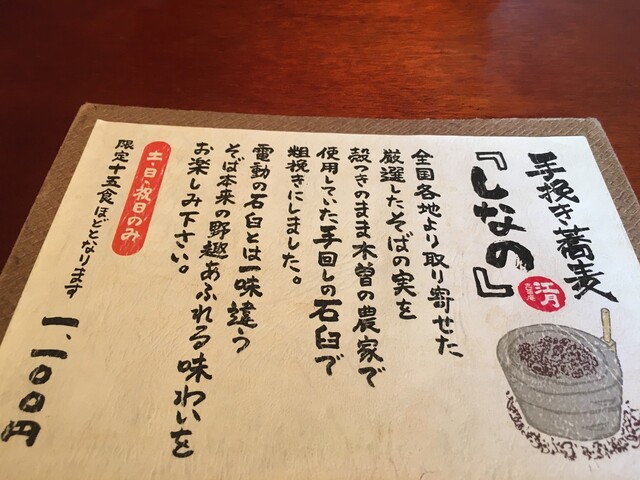 手挽き蕎麦
『しなの』
江月
全国各地より取り寄せた
厳選したそばの実を
殻つきのまま木曽の農家で
使用していた手回しの石臼で
粗挽きにしました。
電動の石臼とは一味違う
そば本来の野趣あふれる味わいを
お楽しみ下さい。
土・日・祝日のみ
限定十五食ほどとなります
一、一〇〇円